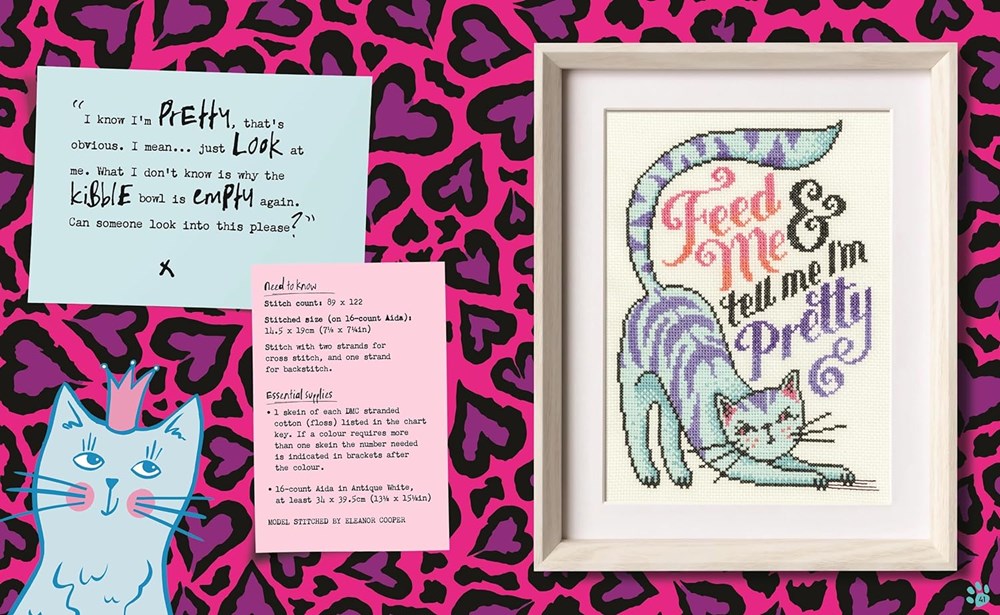 "I know I'm PrEtty, that's
obvious. I mean... just LOOK at
me. What I don't know is why the
kiBBlE bowl is EmPty again.
Can someone look into this please?"
X
Need to know
Stitch count: 89 x 122
Stitched size (on 16-count Aida):
14.5 x 19cm
Stitch with two strands for
cross stitch, and one strand
for backstitch.
Essential supplies
• 1 skein of each DMC stranded
cotton (floss) listed in the chart
key. If a colour requires more
than one skein the number needed
is indicated in brackets after
the colour.
• 16-count Aida in Antique White,
at least 34 x 39.5cm
MODEL STITCHED BY ELEANOR COOPER
Feed
Me &
tell me I'm
Pretty
41